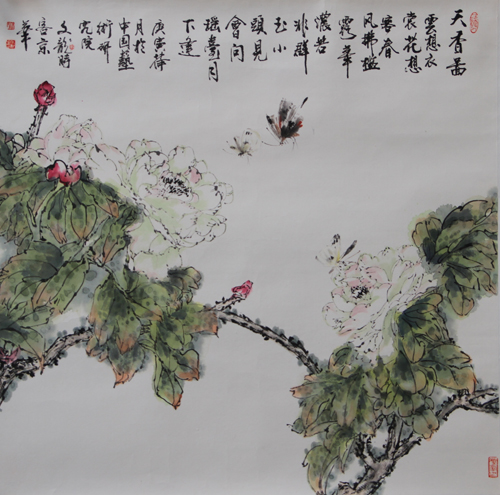 天香圖
雲想衣
裳花想
容春
風拂檻
露華
濃若
非群
玉山
頭見
會向
瑤臺月
下逢
庚寅
月於
中国藝
術研
究院
文龍時
客京
華